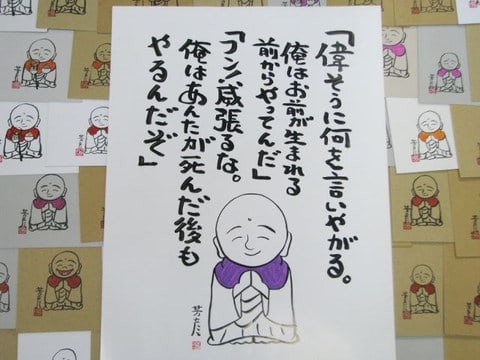 「偉そうに何を言いやがる。
俺はお前が生まれる
前からやってんだ」
「フン！威張るな。
俺はあんたが死んだ後も
やるんだぞ」